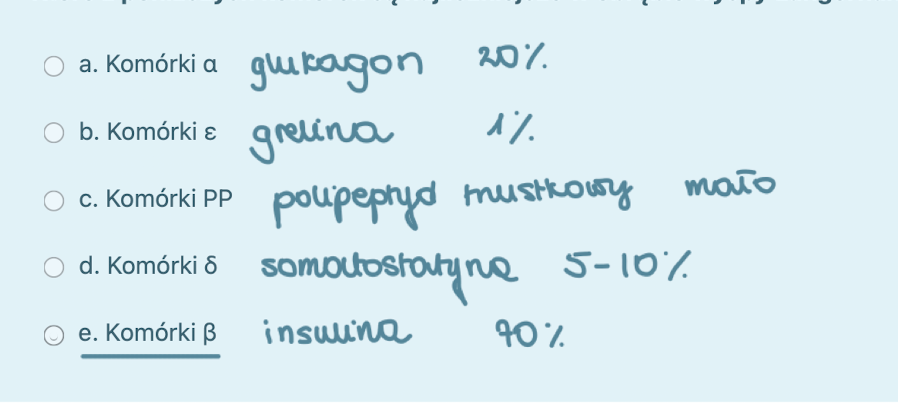 a. Komórki α glukagon 20%
b. Komórki ε grelina 1%
c. Komórki PP polipeptyd trustkowy mało
d. Komórki δ somatostatyna 5-10%
e. Komórki β insulina 70%